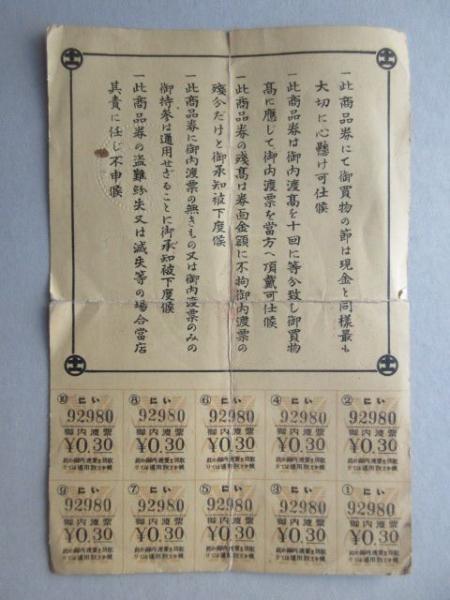 一此商品券にて御買物の節は現金と同様最も
大切に心懸け可仕候
一此商品券は御内渡高を十回に等分致し御買物
高に應じて御内渡票を當方へ頂戴可仕候
一此商品券の殘高は券面金額に不拘御内渡票の
殘分だけと御承知被下度候
一此商品券に御内渡票の無きもの又は御内渡票のみの
御持參は通用せざることに御承知被下度候
一此商品券の盜難紛失又は滅失等の場合當店
其責に任じ不申候
② にい
92980
御内渡票
¥0.30
④ にい
92980
御内渡票
¥0.30
⑥ にい
92980
御内渡票
¥0.30
⑧ にい
92980
御内渡票
¥0.30
⑩ にい
92980
御内渡票
¥0.30
① にい
92980
御内渡票
¥0.30
③ にい
92980
御内渡票
¥0.30
⑤ にい
92980
御内渡票
¥0.30
⑦ にい
92980
御内渡票
¥0.30
⑨ にい
92980
御内渡票
¥0.30